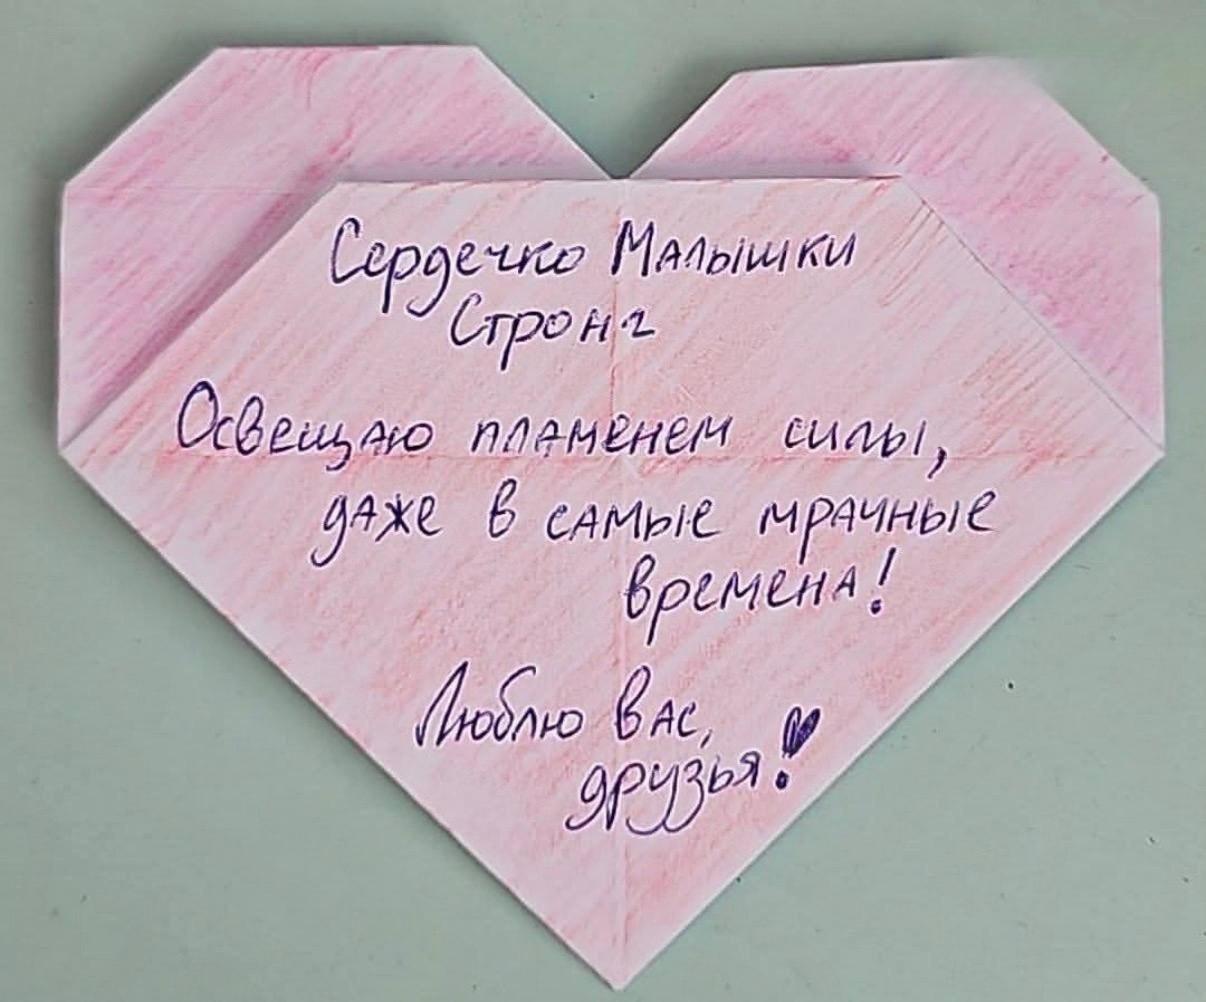 Сердечко Малышки
Стронг
Освещаю пламенем силы,
даже в самые мрачные
времена!
Люблю вас,
друзья!